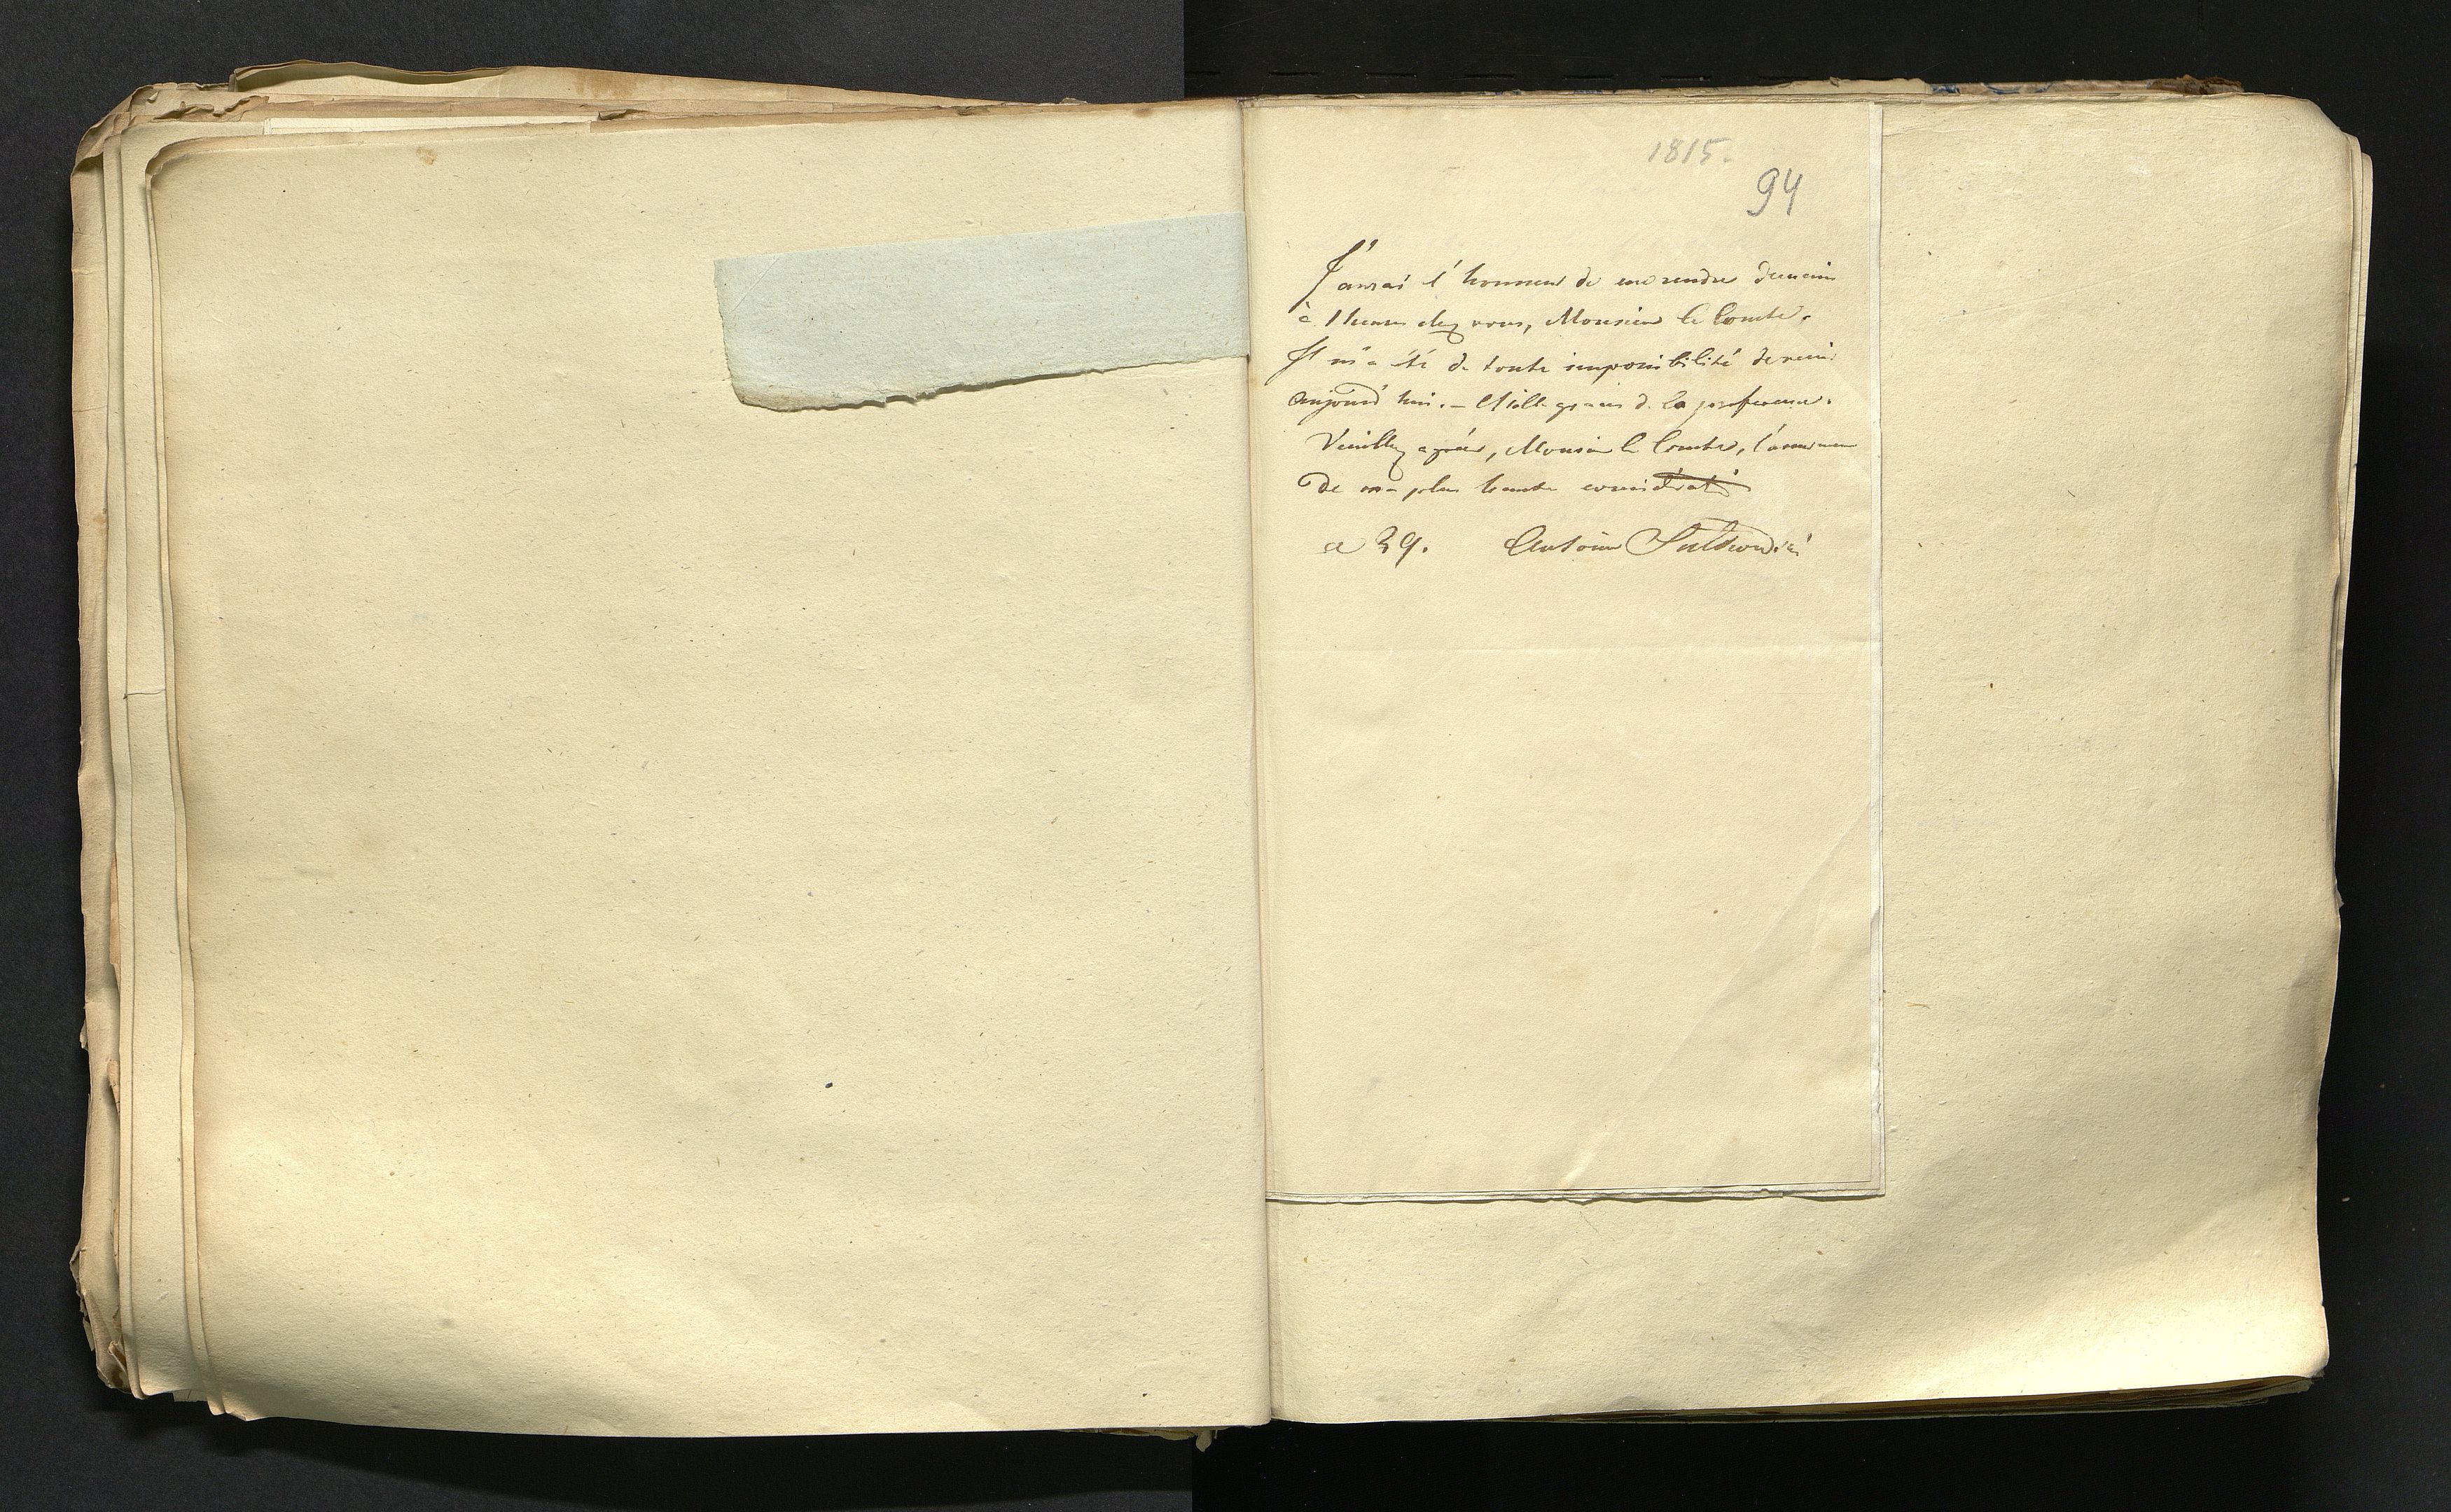 1815.
94
J'aurai l'honneur de me rendre demain
à 1 heure chez vous, Monsieur le Comte.
Il m'a été de toute impossibilité de venir
aujourd'hui. – Mille graces de la préférence.
Veuillez agréer, Monsieur le Comte, l'assurance
de ma plus haute considérati
a 39. Antoine Sulkowski